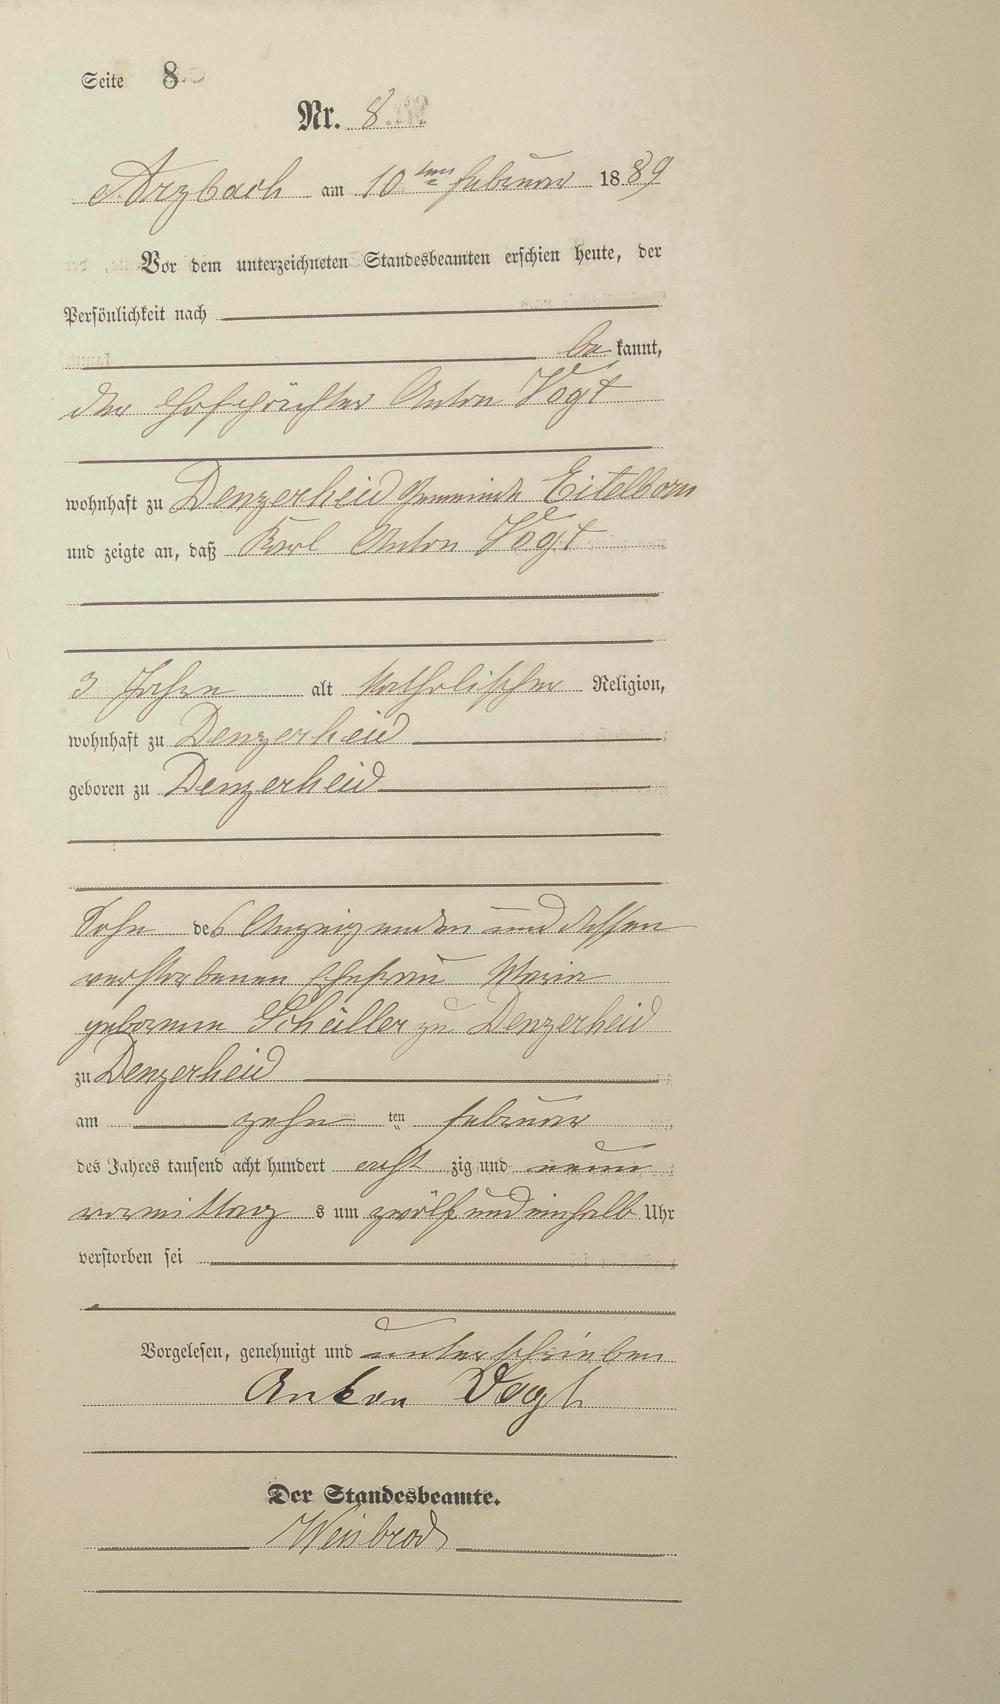 Seite 8
Nr. 8.
Arzbach am 10 ten Februar 1889
Vor dem unterzeichneten Standesbeamten erschien heute, der
Persönlichkeit nach
be kannt,
der Hofpächter Anton Vogt
wohnhaft zu Denzerheid Gemeinde Eitelborn
und zeigte an, daß Karl Anton Vogt
3 Jahre alt katholischer Religion,
wohnhaft zu Denzerheid
geboren zu Denzerheid
Sohn des Anzeigenden und dessen
verstorbenen Ehefrau Maria
geborenen Schüller zu Denzerheid
zu Denzerheid
am zehn ten Februar
des Jahres tausend acht hundert acht zig und neun
vormittag s um zwölf und einhalb Uhr
verstorben sei
Vorgelesen, genehmigt und unterschrieben
Anton Vogt
Der Standesbeamte.
Weisbrod